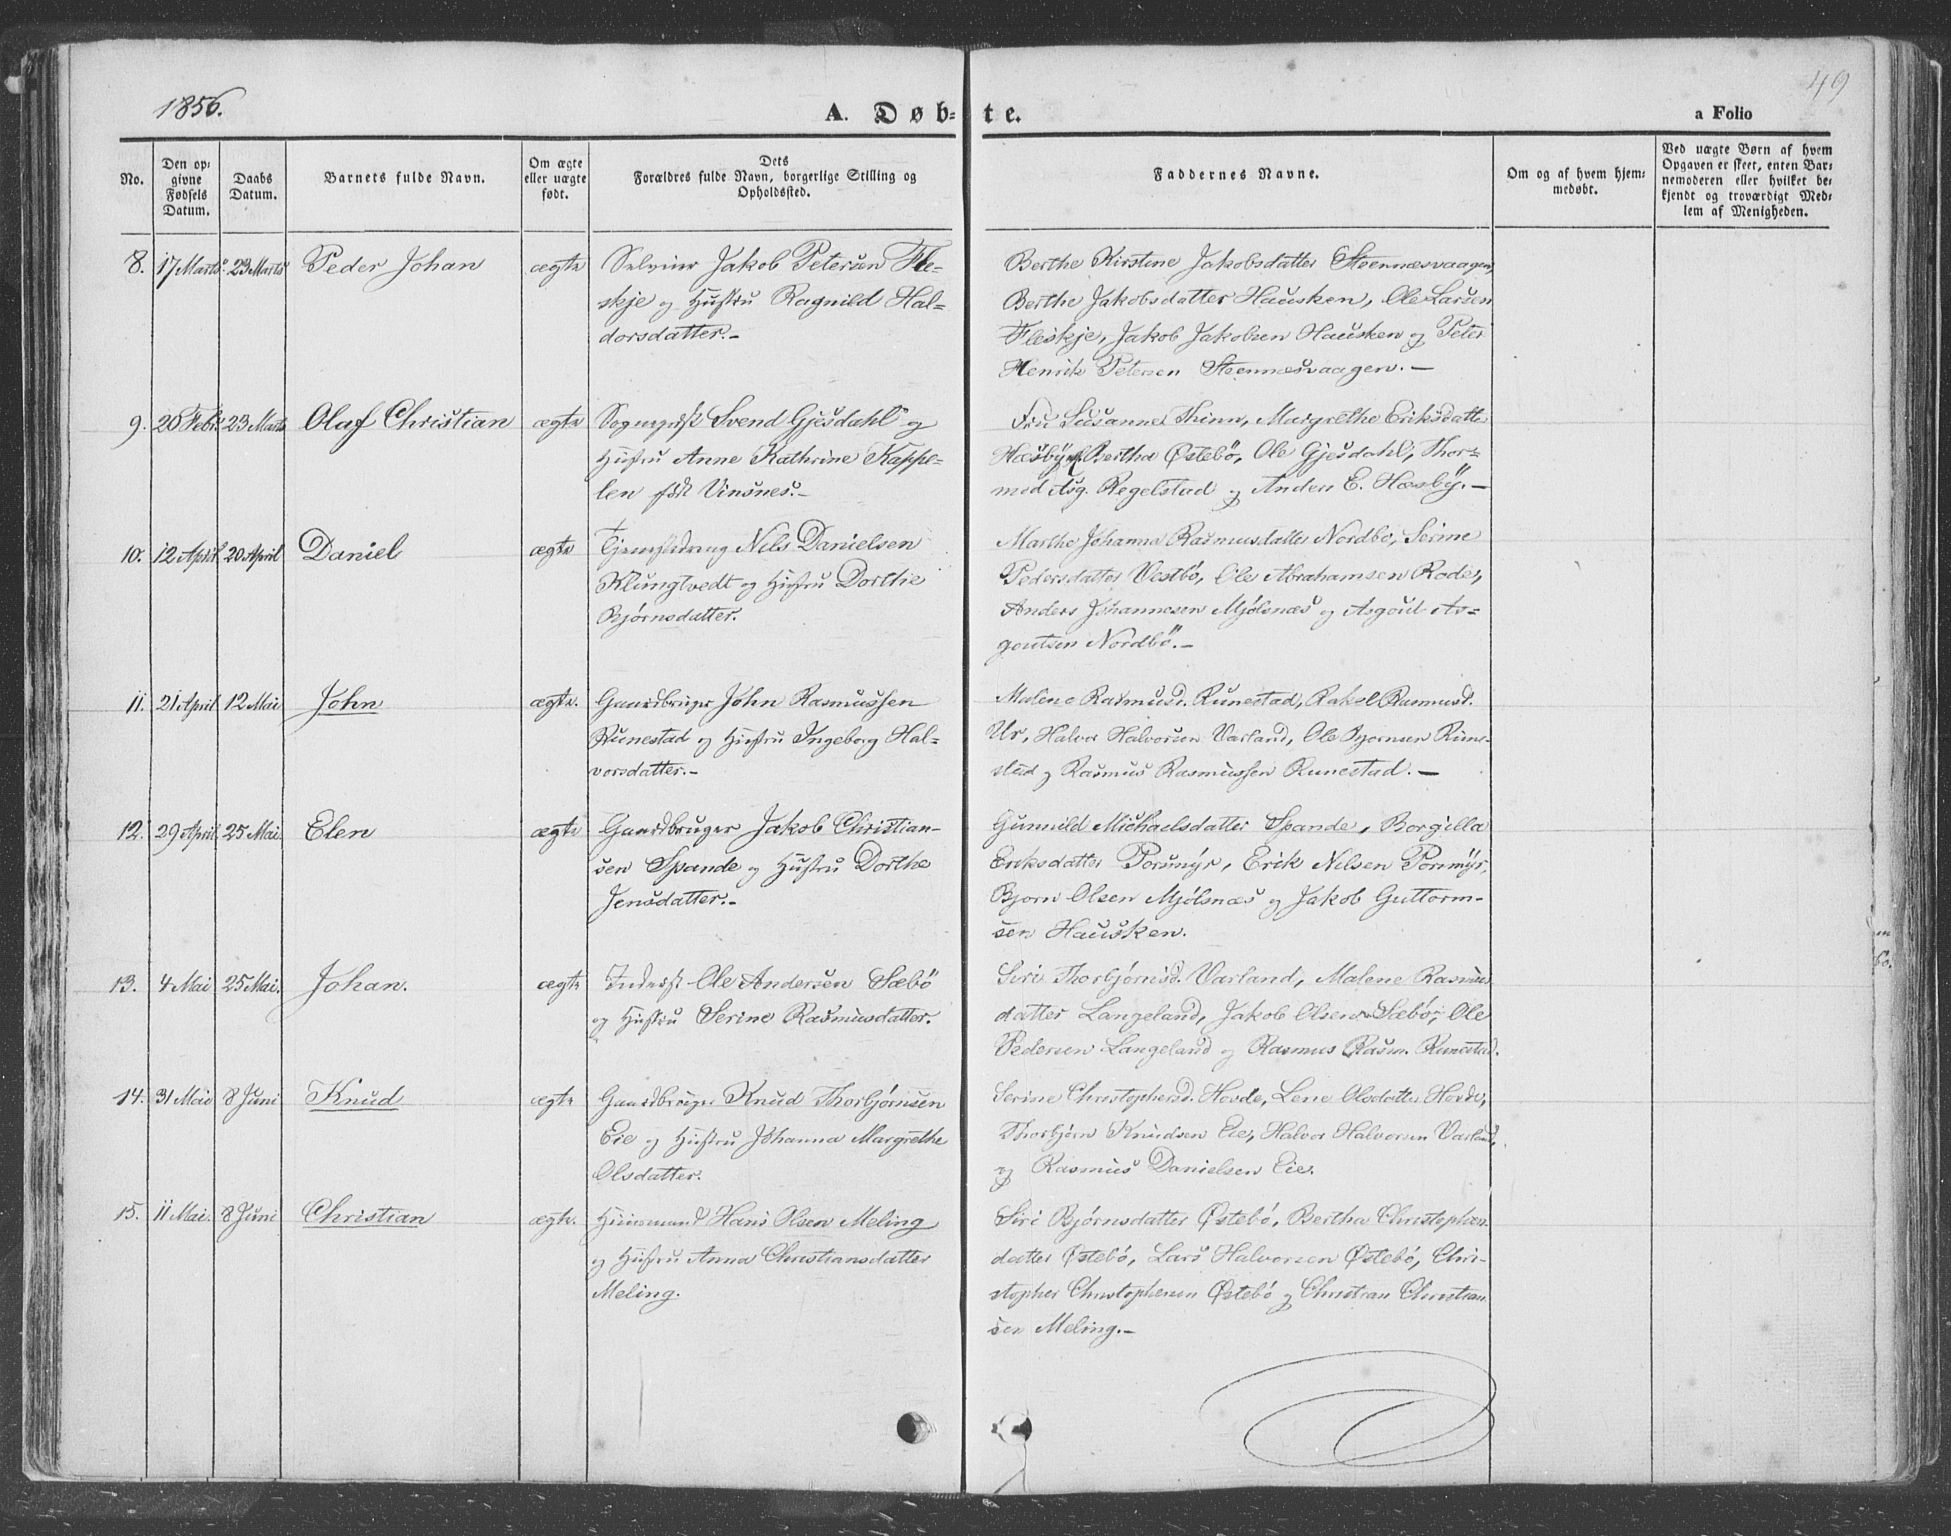 1856.
A. Døb-
te.
49
a Folio
No.
Den op-
givne
Fødsels
Datum.
Daabs
Datum.
Barnets fulde Navn.
Om ægte
eller uægte
født.
Dets
Forældres fulde Navn, borgerlige Stilling og
Opholdssted.
Faddernes Navne.
Om og af hvem hjem-
medøbt.
Ved uægte Børn af hvem
Opgaven er skeet, enten Bar-
nemoderen eller hvilket be-
kjendt og troværdigt Med-
lem af Menigheden.
8. 17 Marts 23 Marts Peder Johan ægte
Selveier Jakob Petersen Fle-
skje og Hustru Ragnild Hal-
dorsdatter.-
Berthe Kirstine Jakobsdatter Steennæsvaagen,
Berthe Jakobsdatter Hausken, Ole Larsen
Fleskje, Jakob Jakobsen Hausken og Peter
Henrik Petersen Steennæsvaagen.-
9. 26 Febr. 23 Marts Olaf Christian ægte
Sognepræst Svend Gjesdahl og
Hustru Anne Kathrine Kappe-
len født Vinsnes.-
Fru Susanne Thinn, Margrethe Eriksdatter
Hæsby, Bertha Østebö, Ole Gjesdahl, Thor-
mod Asg. Regelstad og Anders E. Hæsbÿ.-
10. 12 April 20 April Daniel ægte
Tjenestedreng Nils Danielsen
Klungtvedt og Hustru Dorthe
Bjørnsdatter.
Marthe Johanna Rasmusdatter Nordbö, Serine
Pedersdatter Vestbö, Ole Abrahamsen Rode,
Anders Johannesen Mjölsnæs og Asgout As-
goutsen Nordbö.-
11. 21 April 12 Mai John ægte.
Gaardbruger John Rasmussen
Runestad og Hustru Ingeborg Hal-
vorsdatter.-
Malene Rasmusd. Runestad, Rakel Rasmusd.
Ur, Halvor Halvorsen Varland, Ole Bjornsen Rune-
stad og Rasmus Rasmussen Runestad.-
12. 29 April 25 Mai. Elen ægte
Gaardbruger Jakob Christian-
sen Spande og Hustru Dorthe
Jensdatter.-
Gunnild Michaelsdatter Spande, Borgilla
Eriksdatter Porsmÿr, Erik Nilsen Porsmÿr,
Bjorn Olsen Mjølsnæs og Jakob Guttorm-
sen Hausken.
13. 4 Mai 25 Mai. Johan. ægte
Inderst Ole Andersen Sæbö
og Hustru Serine Rasmusdatter.
Siri Thorbjørnsd. Varland, Malene Rasmus
datter Langeland, Jakob Olsen Sæbö, Ole
Pedersen Langeland og Rasmus Rasm. Runestad.
14. 31 Mai 8 Juni Knud ægte
Gaardbruger Knud Thorbjørnsen
Eie og Hustru Johanna Margrethe
Olsdatter.
Serine Christophersd. Hovde, Lene Olsdatter Hovde,
Thorbjørn Knudsen Eie, Halvor Halvorsen Varland,
og Rasmus Danielsen Eie.
15. 11 Mai. 8 Juni Christian ægte.
Huusmand Hans Olsen Meling
og Hustru Anna Christiansdatter
Meling.
Siri Bjørnsdatter Østebö, Bertha Christophers
datter Østebö, Lars Halvorsen Østebö, Chri-
stopher Christophersen Østebö og Christian Christian
sen Meling.-